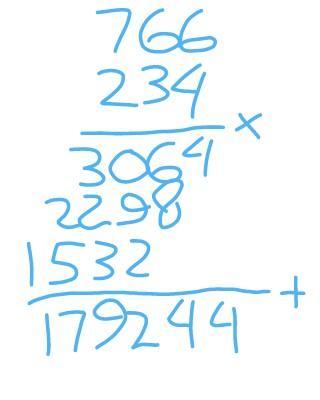 766
234
×
3064
2298
1532
+
179244